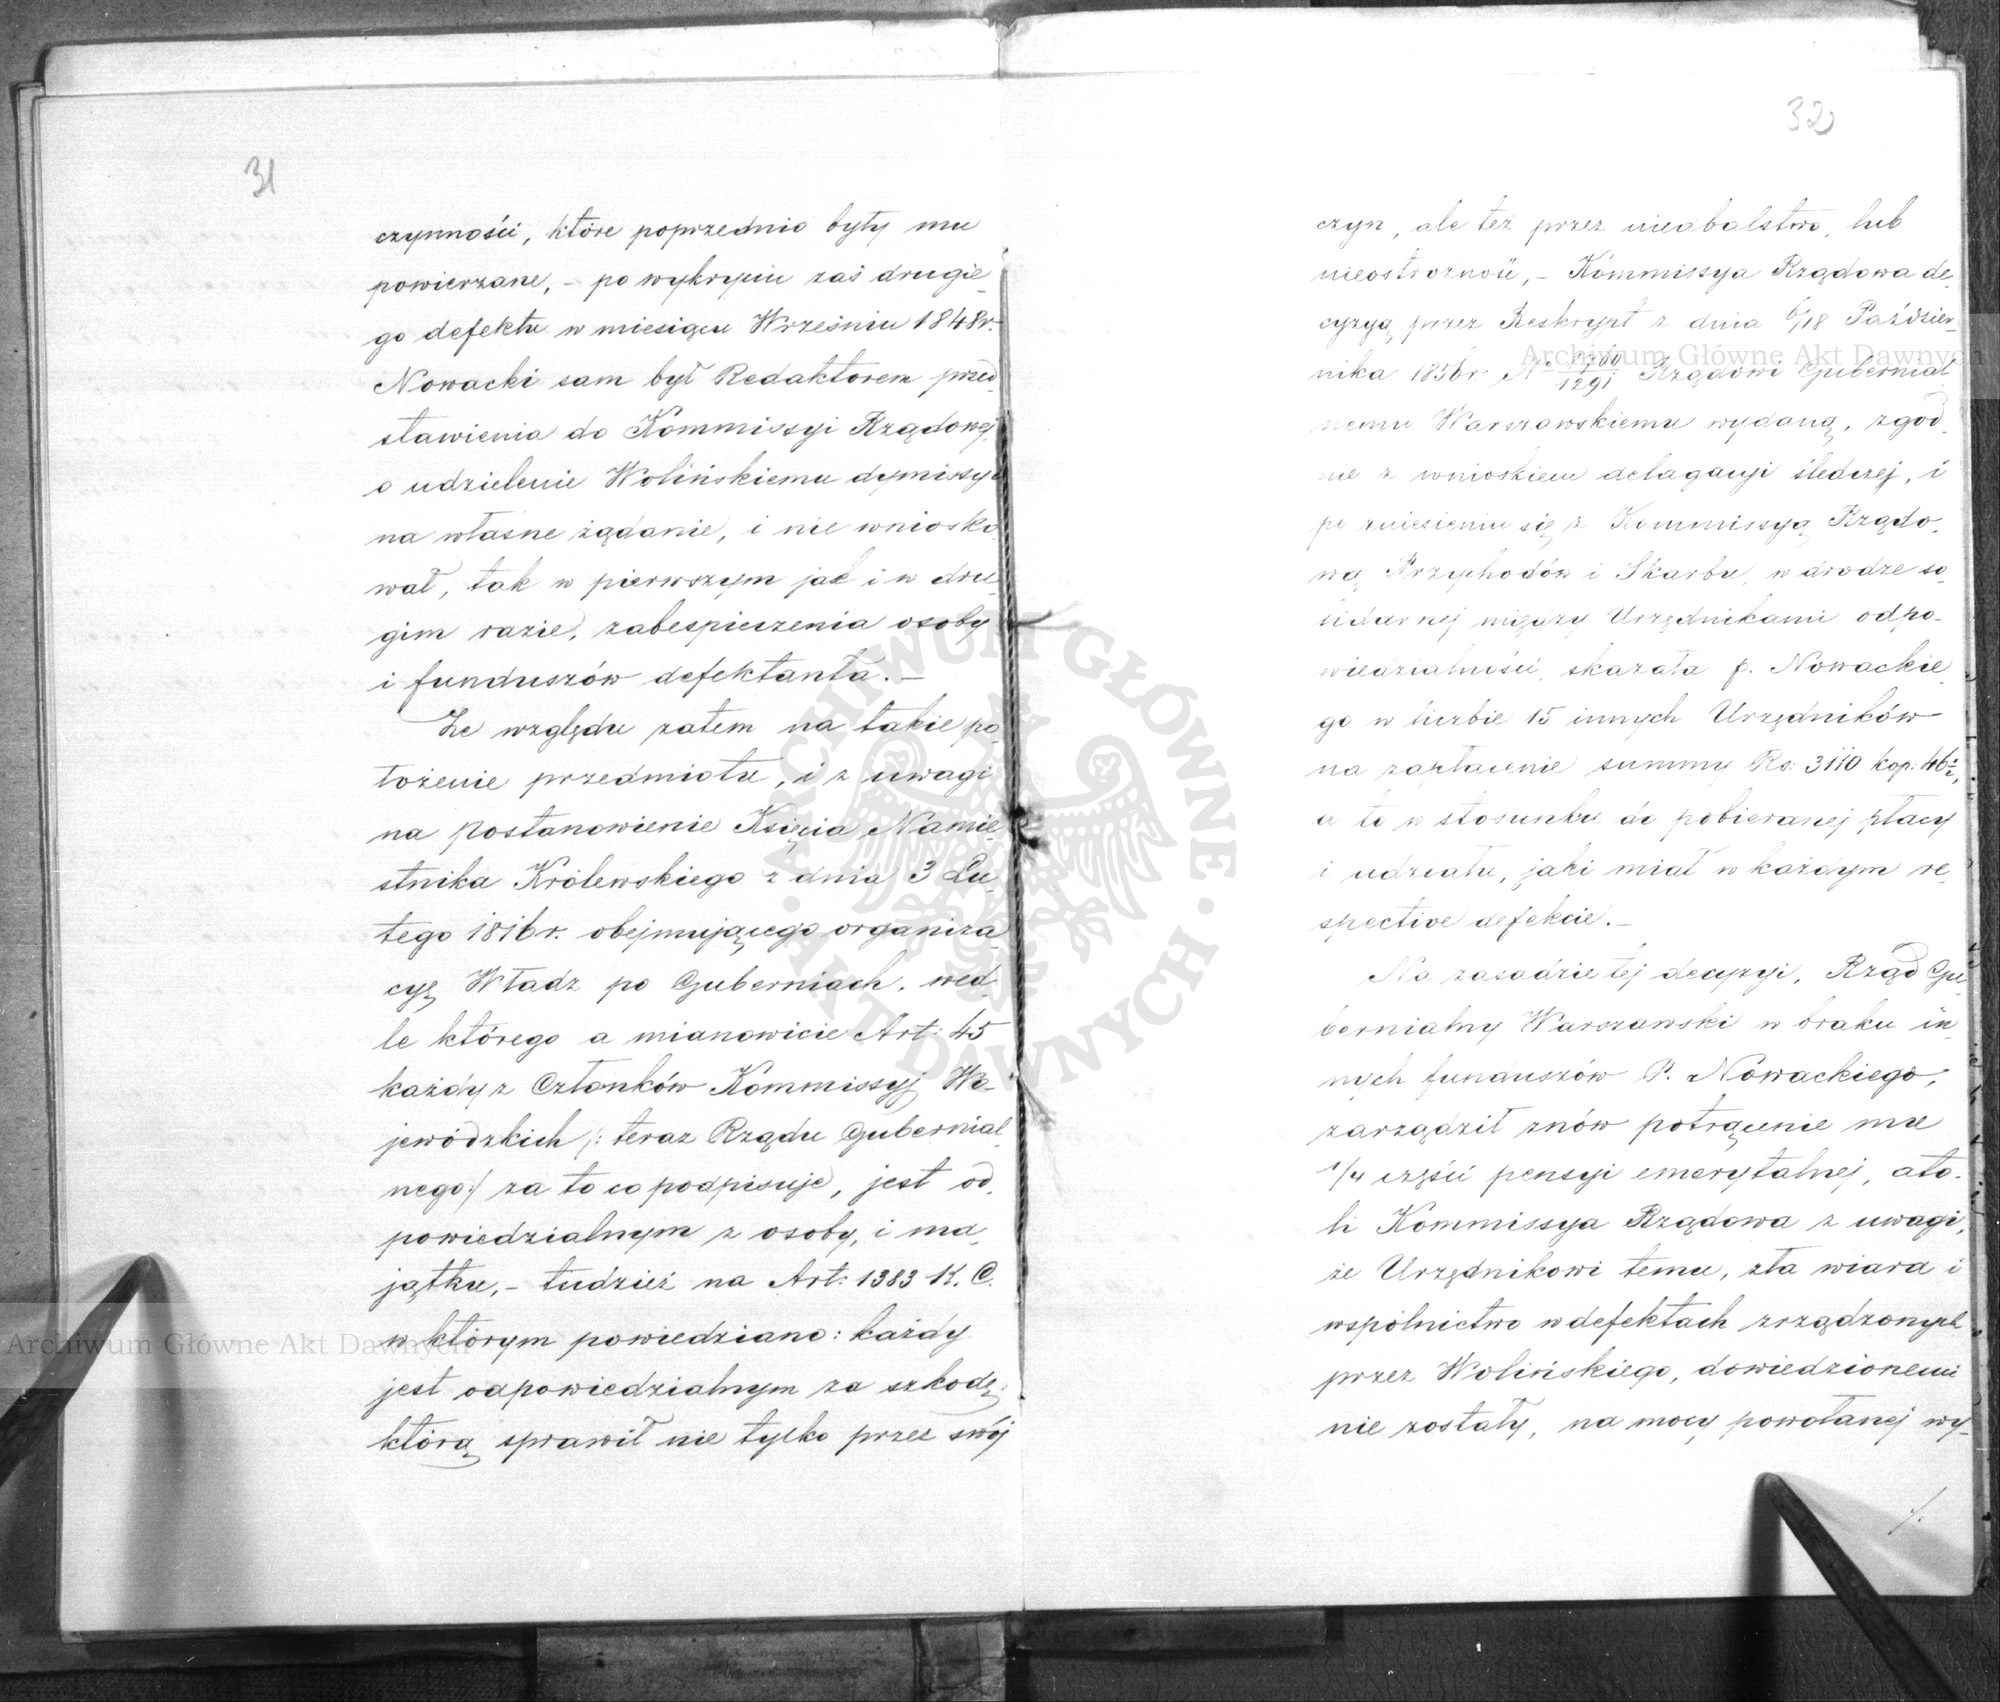 31
czynności, które poprzednio były mu
powierzane, – po wykryciu zaś drugie-
go defektu w miesiącu Wrześniu 1848r.
Nowacki sam był Redaktorem przed-
stawienia do Kommissyi Rządowej,
o udzielenie Wolińskiemu dymissyi
na własne żądanie, i nie wniosko-
wał, tak w pierwszym jak i w dru-
gim razie, zabespieczenia osoby
i funduszów defektanta. –
Ze względu zatem na takie po-
łożenie przedmiotu, i z uwagi
na postanowienie Księcia Namie-
stnika Królewskiego z dnia 3 Lu-
tego 1816r. obejmującego organiza-
cyę Władz po Guberniach, wed-
le którego a mianowicie Art: 45
każdy z Członków Kommissyj Wo-
jewódzkich /: teraz Rządu Gubernial-
nego:/ za to co podpisuje, jest od-
powiedzialnym z osoby, i ma-
jątku, – tudzież na Art: 1383 K. C.
w którym powiedziano: każdy
jest odpowiedzialnym za szkodę,
którą sprawił nie tylko przez swój
32
czyn, ale też przez niedbalstwo, lub
nieostrożność, – Kommissya Rządowa de-
cyzyą przez Reskrypt z dnia 6/18 Paździer-
nika 1856r № /1291 Rządowi Gubernial-
nemu Warszawskiemu wydaną, zgod-
nie z wnioskiem delagacyi śledczej, i
po zniesieniu się z Kommissyą Rządo-
wą Przychodów i Skarbu, w drodze so-
lidarnej między Urzędnikami odpo-
wiedzialności, skazała p. Nowackie-
go w liczbie 15 innych Urzędników
na zapłacenie summy Rs: 3110 kop: 46½,
a to w stosunku do pobieranej płacy
i udziału, jaki miał w każdym re-
spective defekcie. –
Na zasadzie tej decyzyi, Rząd Gu-
bernialny Warszawski w braku in-
nych funduszów P. Nowackiego,
zarządził znów potrącenie mu
1/4 części pensyi emerytalnej, ato-
li Kommissya Rządowa z uwagi,
że Urzędnikowi temu, zła wiara i
wspólnictwo w defektach zrządzonych
przez Wolińskiego, dowiedzionemi
nie zostały, na mocy powołanej wy-
Archiwum Główne Akt Dawnych
Archiwum Główne Akt Dawnych
ARCHIWUM GŁÓWNE · AKT DAWNYCH ·